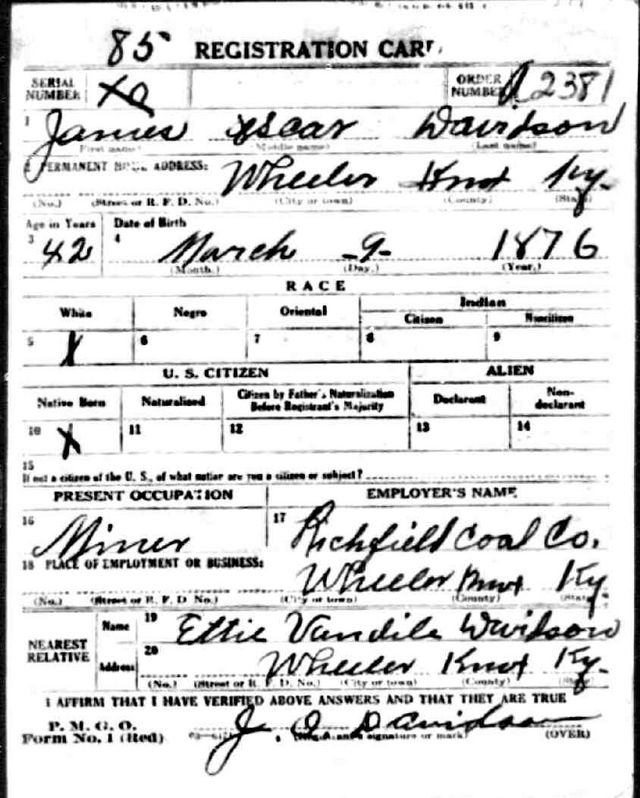 85 REGISTRATION CARD
SERIAL NUMBER
ORDER NUMBER A2381
1 James Oscar Davidson
(First name) (Middle name) (Last name)
2 PERMANENT HOME ADDRESS: Wheeler Knox Ky.
(No.) (Street or R. F. D. No.) (City or town) (County) (State)
Age in Years Date of Birth
3 42 4 March -9- 1876
(Month.) (Day.) (Year.)
RACE
White Negro Oriental Indian
Citizen Noncitizen
5 X 6 7 8 9
U. S. CITIZEN ALIEN
Native Born Naturalized Citizen by Father's Naturalization Before Registrant's Majority Declarant Non-declarant
10 X 11 12 13 14
15
If not a citizen of the U. S., of what nation are you a citizen or subject?
PRESENT OCCUPATION EMPLOYER'S NAME
16 Miner 17 Richfield Coal Co.
18 PLACE OF EMPLOYMENT OR BUSINESS:
Wheeler Knox Ky.
(No.) (Street or R. F. D. No.) (City or town) (County) (State)
NEAREST RELATIVE
Name 19 Ettie Vandile Davidson
Address 20 Wheeler Knox Ky.
(No.) (Street or R. F. D. No.) (City or town) (County) (State)
I AFFIRM THAT I HAVE VERIFIED ABOVE ANSWERS AND THAT THEY ARE TRUE
P. M. G. O.
Form No. 1 (Red) J. O. Davidson
(Registrant's signature or mark) (OVER)